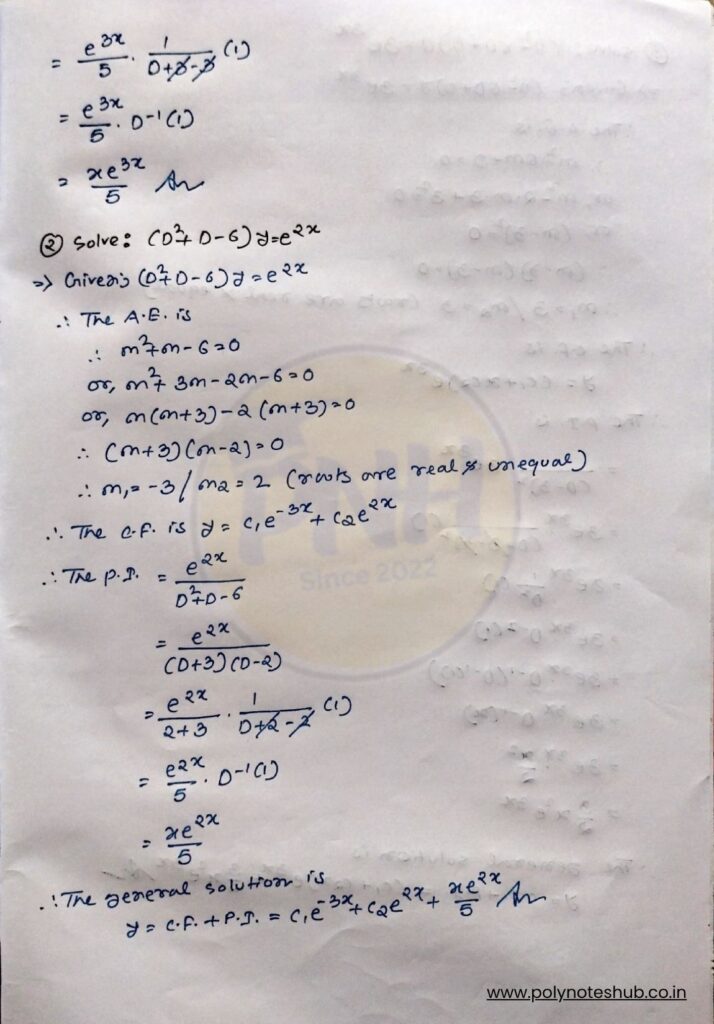 = e^3x/5 · 1/(D+3-3) (1)
= e^3x/5 · D^-1 (1)
= xe^3x/5 Ans
② Solve: (D²+D-6)y=e^2x
=> Given; (D²+D-6)y=e^2x
∴ The A.E. is
∴ m²+m-6=0
or, m²+3m-2m-6=0
or, m(m+3)-2(m+3)=0
∴ (m+3)(m-2)=0
∴ m₁=-3/m₂=2 (roots are real & unequal)
∴ The C.F. is y= c₁e^-3x+c₂e^2x
∴ The P.I. = e^2x/(D²+D-6)
= e^2x/((D+3)(D-2))
= e^2x/(2+3) · 1/(D+2-2) (1)
= e^2x/5 · D^-1(1)
= xe^2x/5
∴ The general solution is
y= C.F.+P.I. = c₁e^-3x+c₂e^2x+xe^2x/5 Ans
PNH
Since 2022
www.polynoteshub.co.in